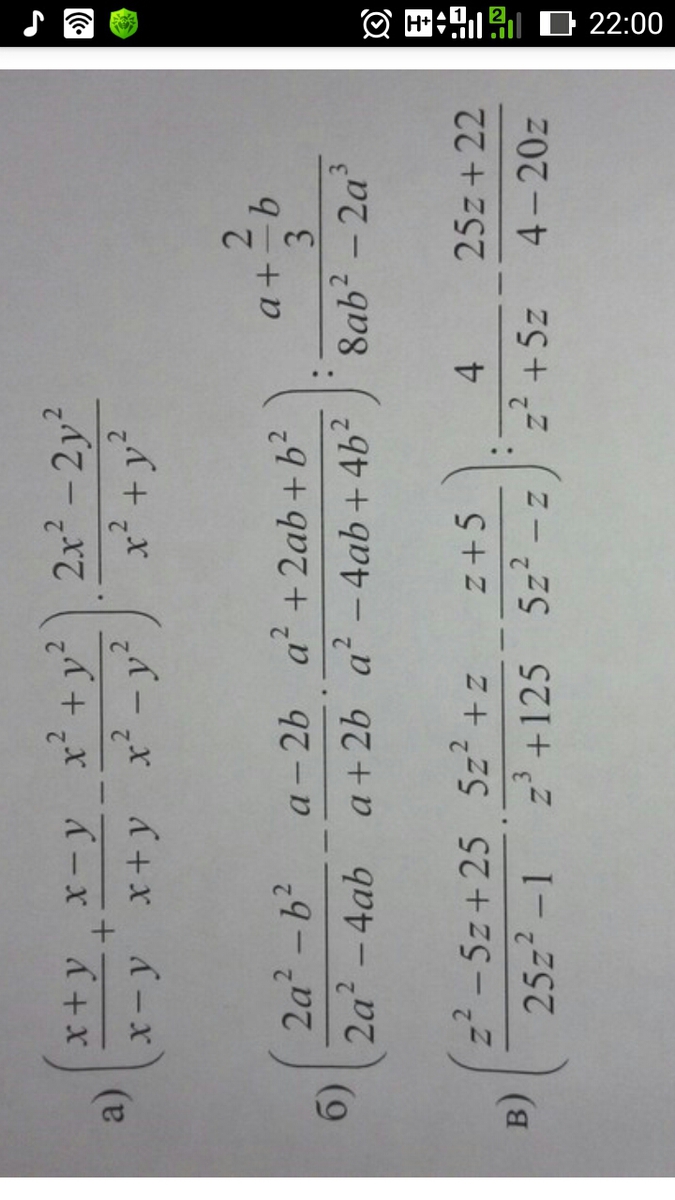 H+ 1 2 22:00
а) ((x+y)/(x−y) + (x−y)/(x+y) − (x²+y²)/(x²−y²)) · (2x²−2y²)/(x²+y²)
б) ((2a²−b²)/(2a²−4ab) − (a−2b)/(a+2b) · (a²+2ab+b²)/(a²−4ab+4b²)) : (a+2/3b)/(8ab²−2a³)
в) ((z²−5z+25)/(25z²−1) · (5z²+z)/(z³+125) − (z+5)/(5z²−z)) : 4/(z²+5z) − (25z+22)/(4−20z)